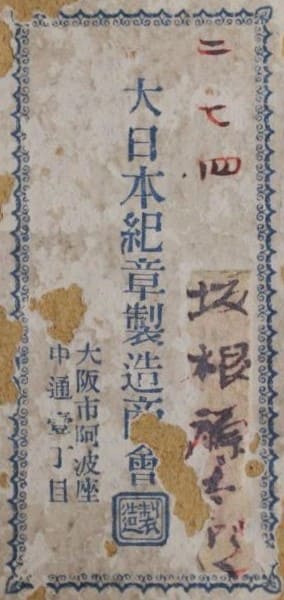 二七四
坂根
大日本紀章製造商會
大阪市阿波座
中通壹丁目
製造